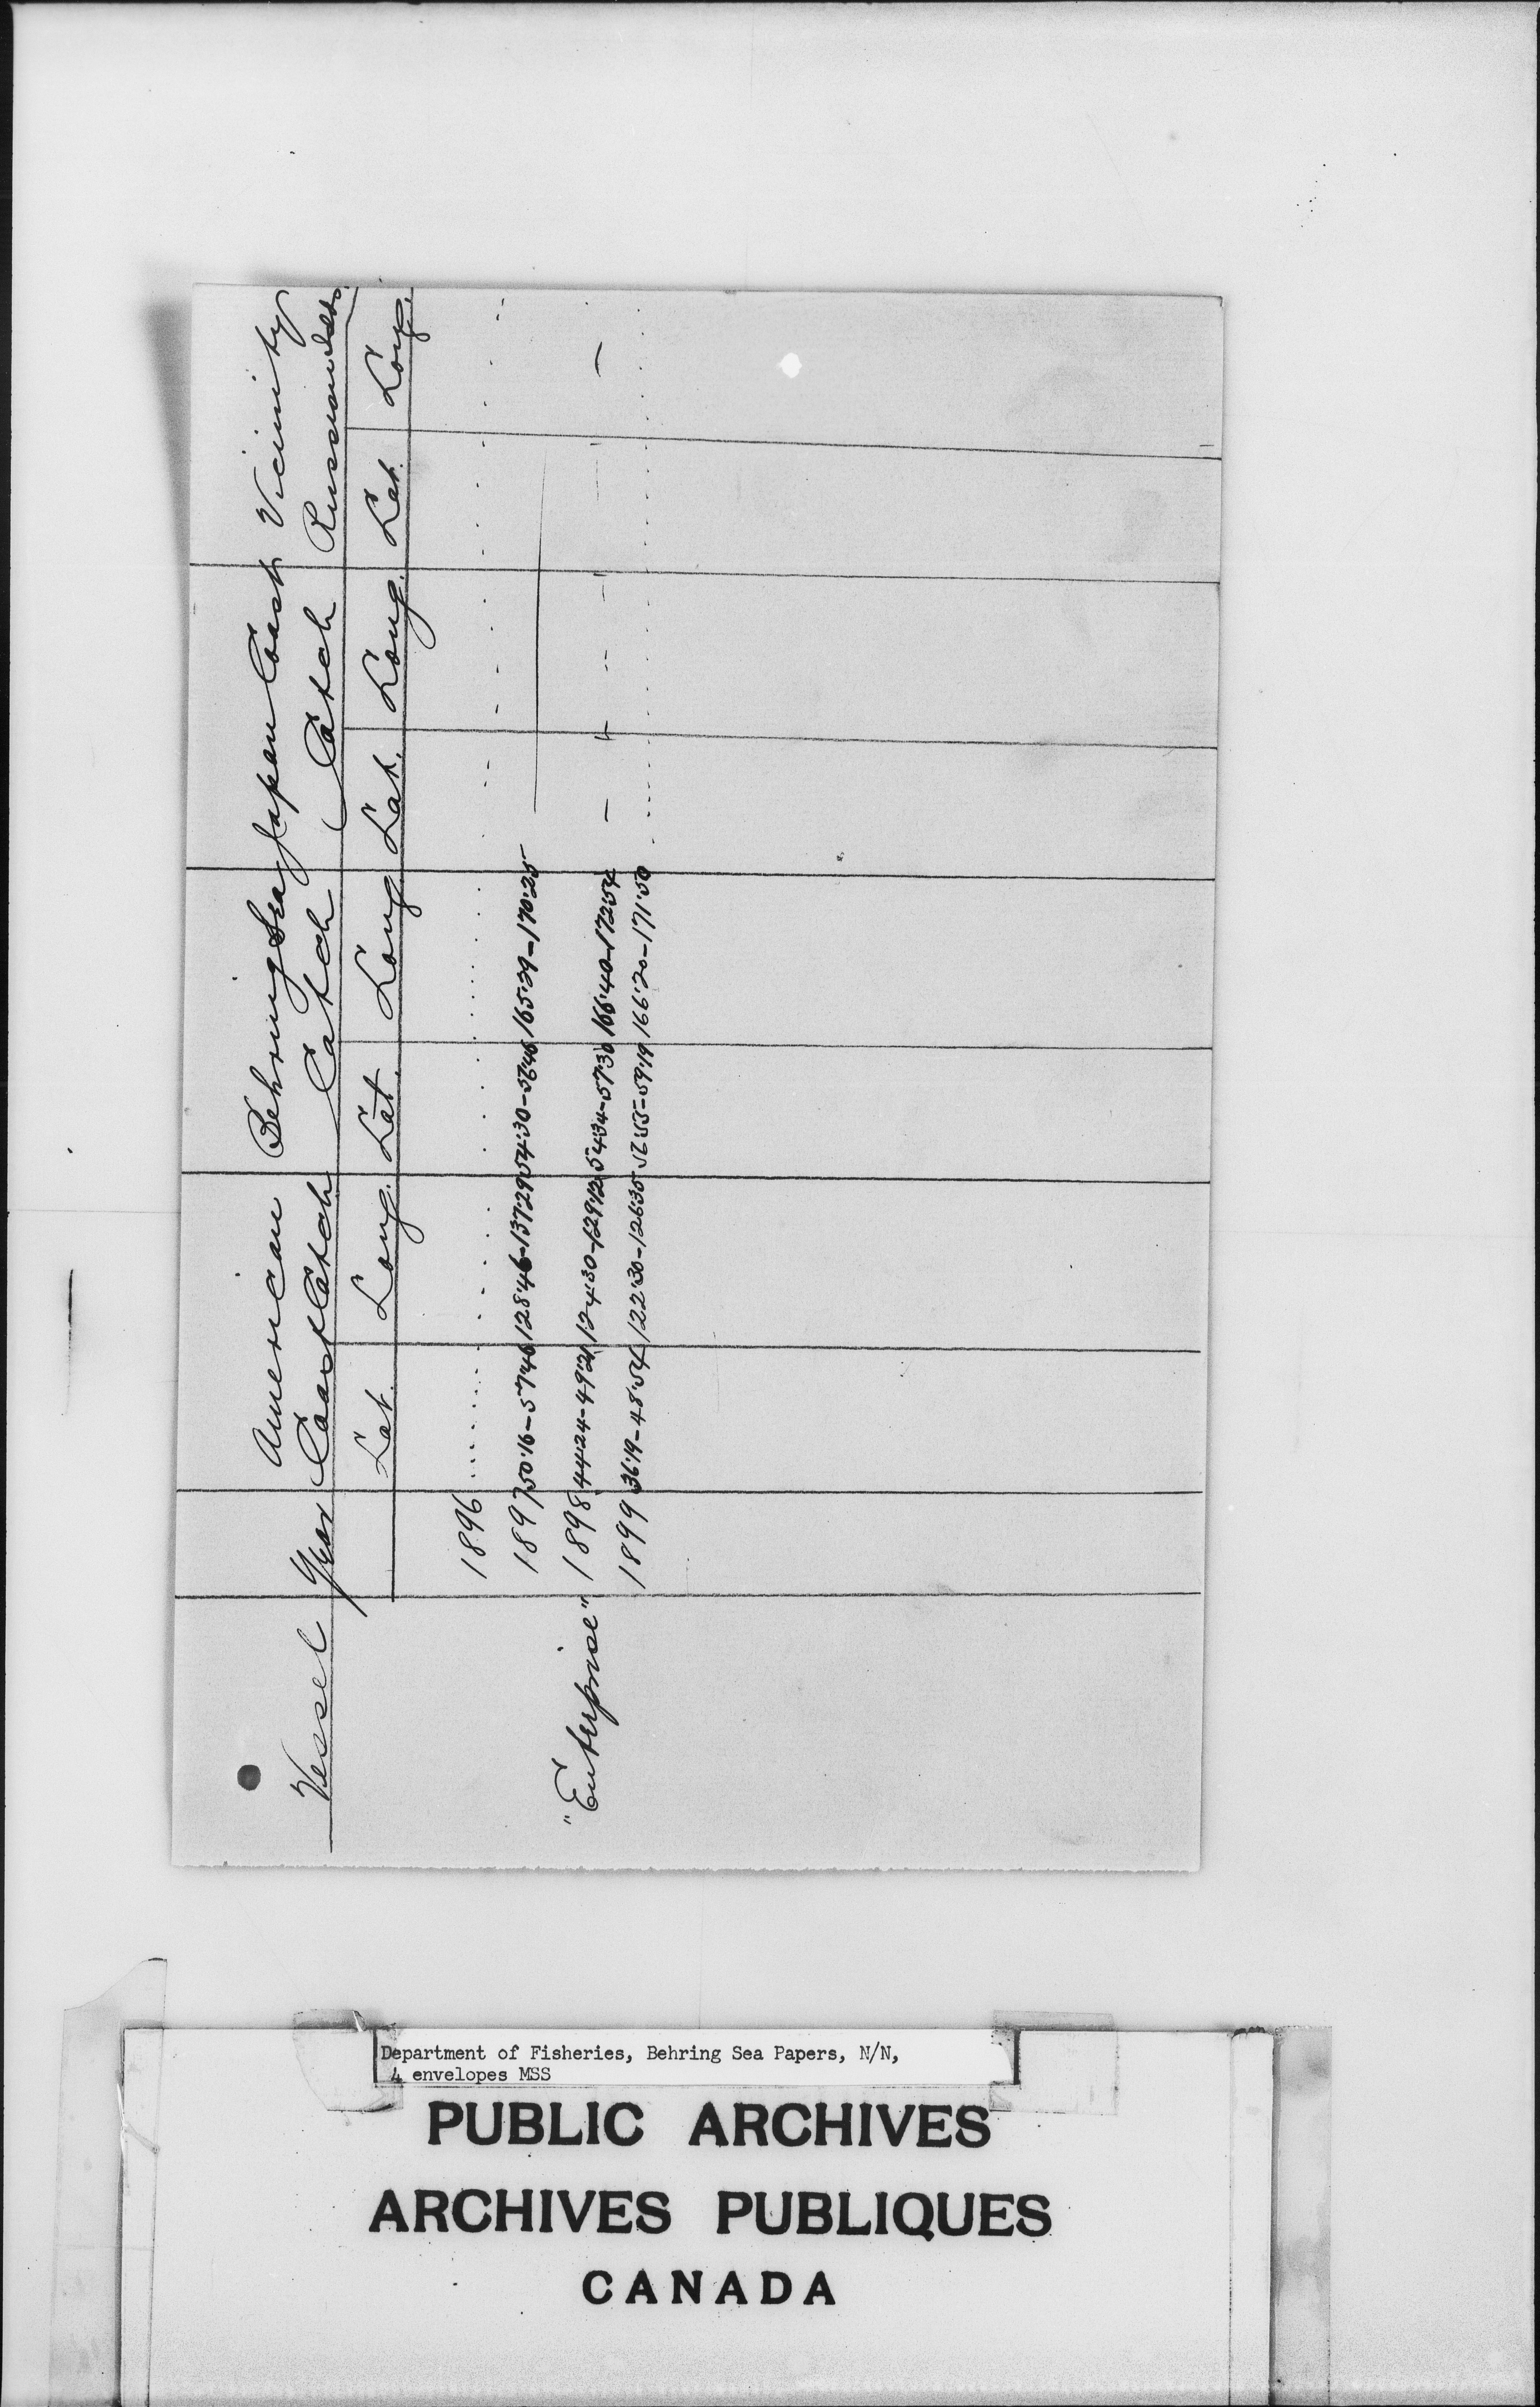 American Behring Sea Japan Coast Vicinity
Vessel Year Coast Catch Catch Catch Russian Islds.
Lat. Long. Lat. Long. Lat. Long. Lat. Long.
1896
1897 50·16–57·46 128·46–137·29 54·30–56·46 165·29–170·25
"Enterprise" 1898 44·24–49·21 124·30–129·12 54·34–57·30 166·40–172·54
1899 36·19–48·54 122·30–126·35 52·55–59·19 166·20–171·50
Department of Fisheries, Behring Sea Papers, N/N,
4 envelopes MSS
PUBLIC ARCHIVES
ARCHIVES PUBLIQUES
CANADA